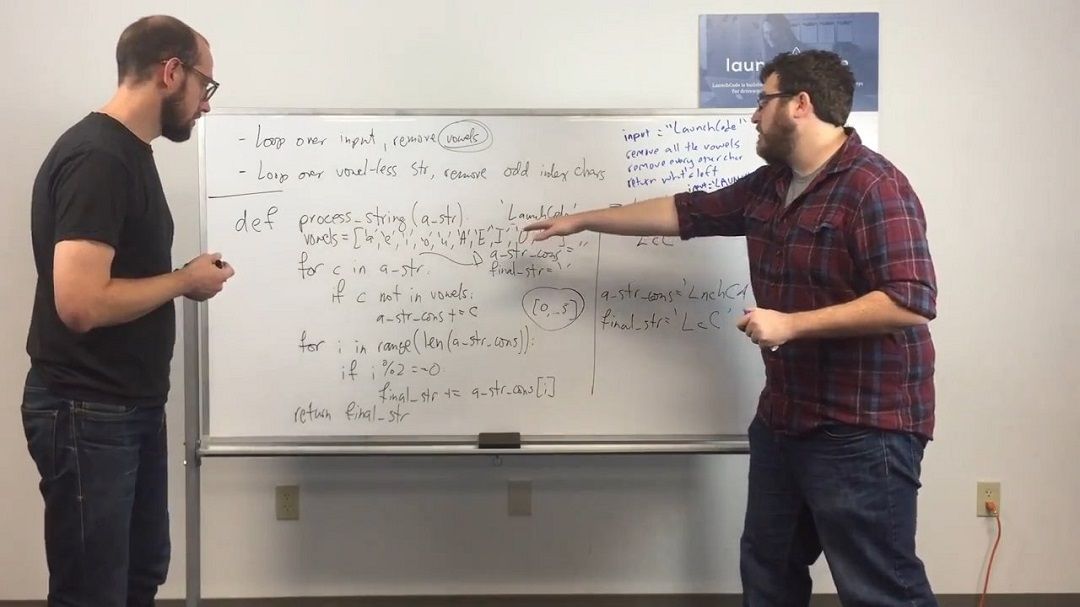 laun
- Loop over input, remove vowels
- Loop over vowel-less str, remove odd index chars
input = "LaunchCode"
remove all the vowels
remove every other char
return what's left
input='LAUN
def process_string(a_str):
'LaunchCode'
vowels=['a','e','i','o','u','A','E','I','O',
a_str_cons = ''
final_str = ''
for c in a_str:
if c not in vowels:
a_str_cons += c
[0,..5]
for i in range(len(a_str_cons)):
if i %2 == 0:
final_str += a_str_cons[i]
return final_str
LcC
a_str_cons='LnchCd
final_str='LcC'